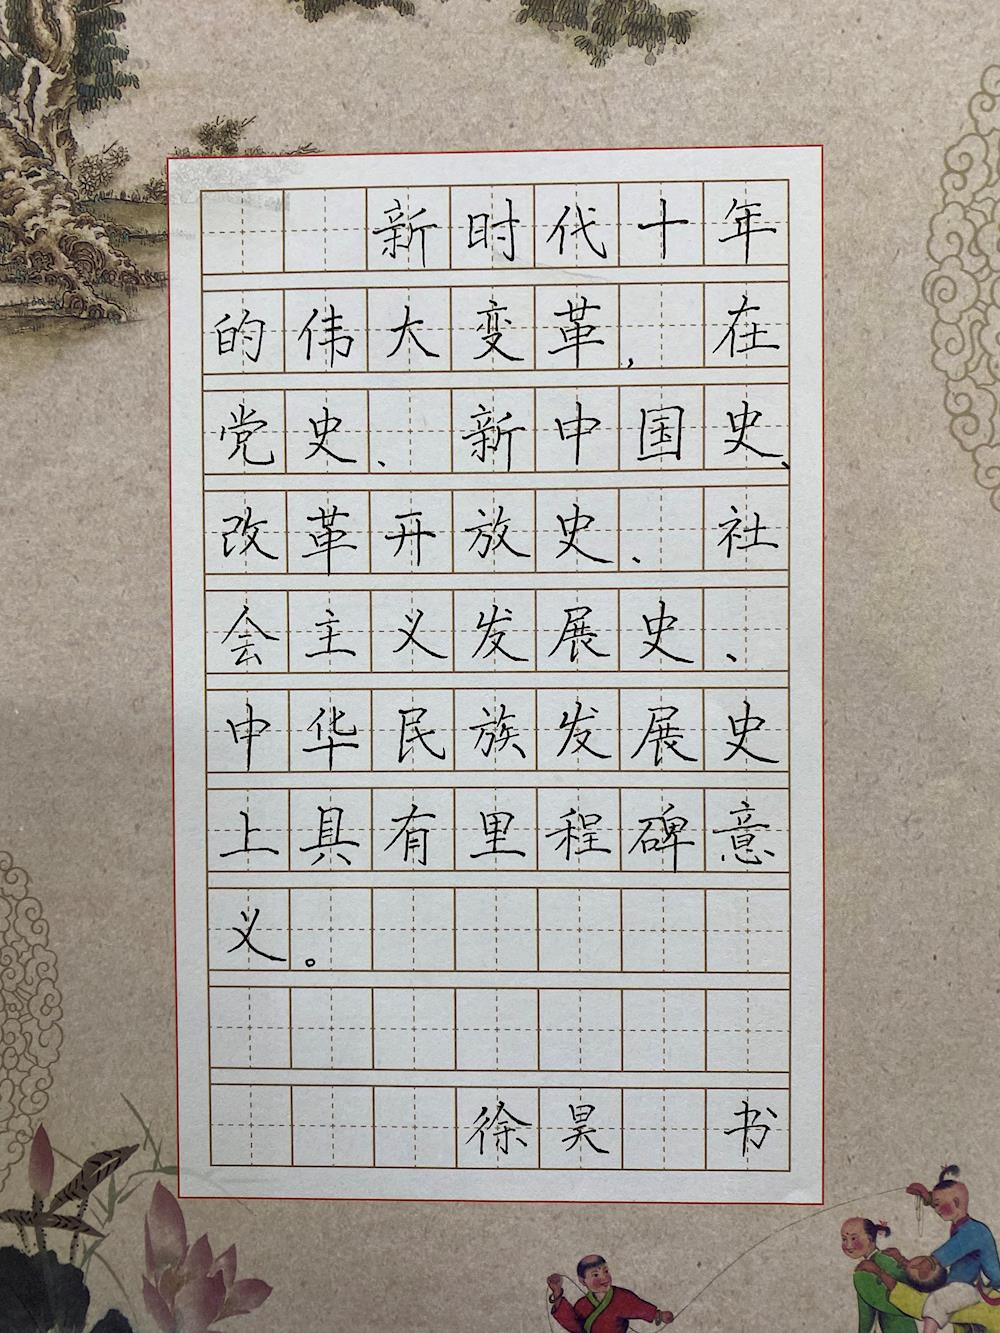 新时代十年
的伟大变革，在
党史、新中国史、
改革开放史、社
会主义发展史、
中华民族发展史
上具有里程碑意
义。
徐昊 书